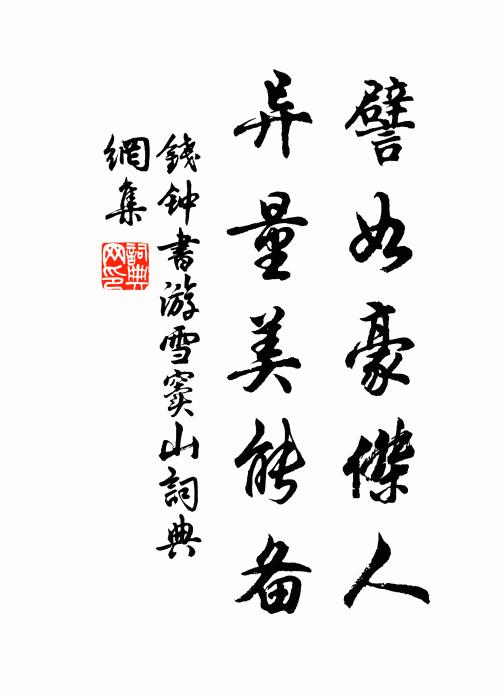 譬如豪傑人
异量美能备
錢钟書游雪窦山詞典
網集
詞典网印